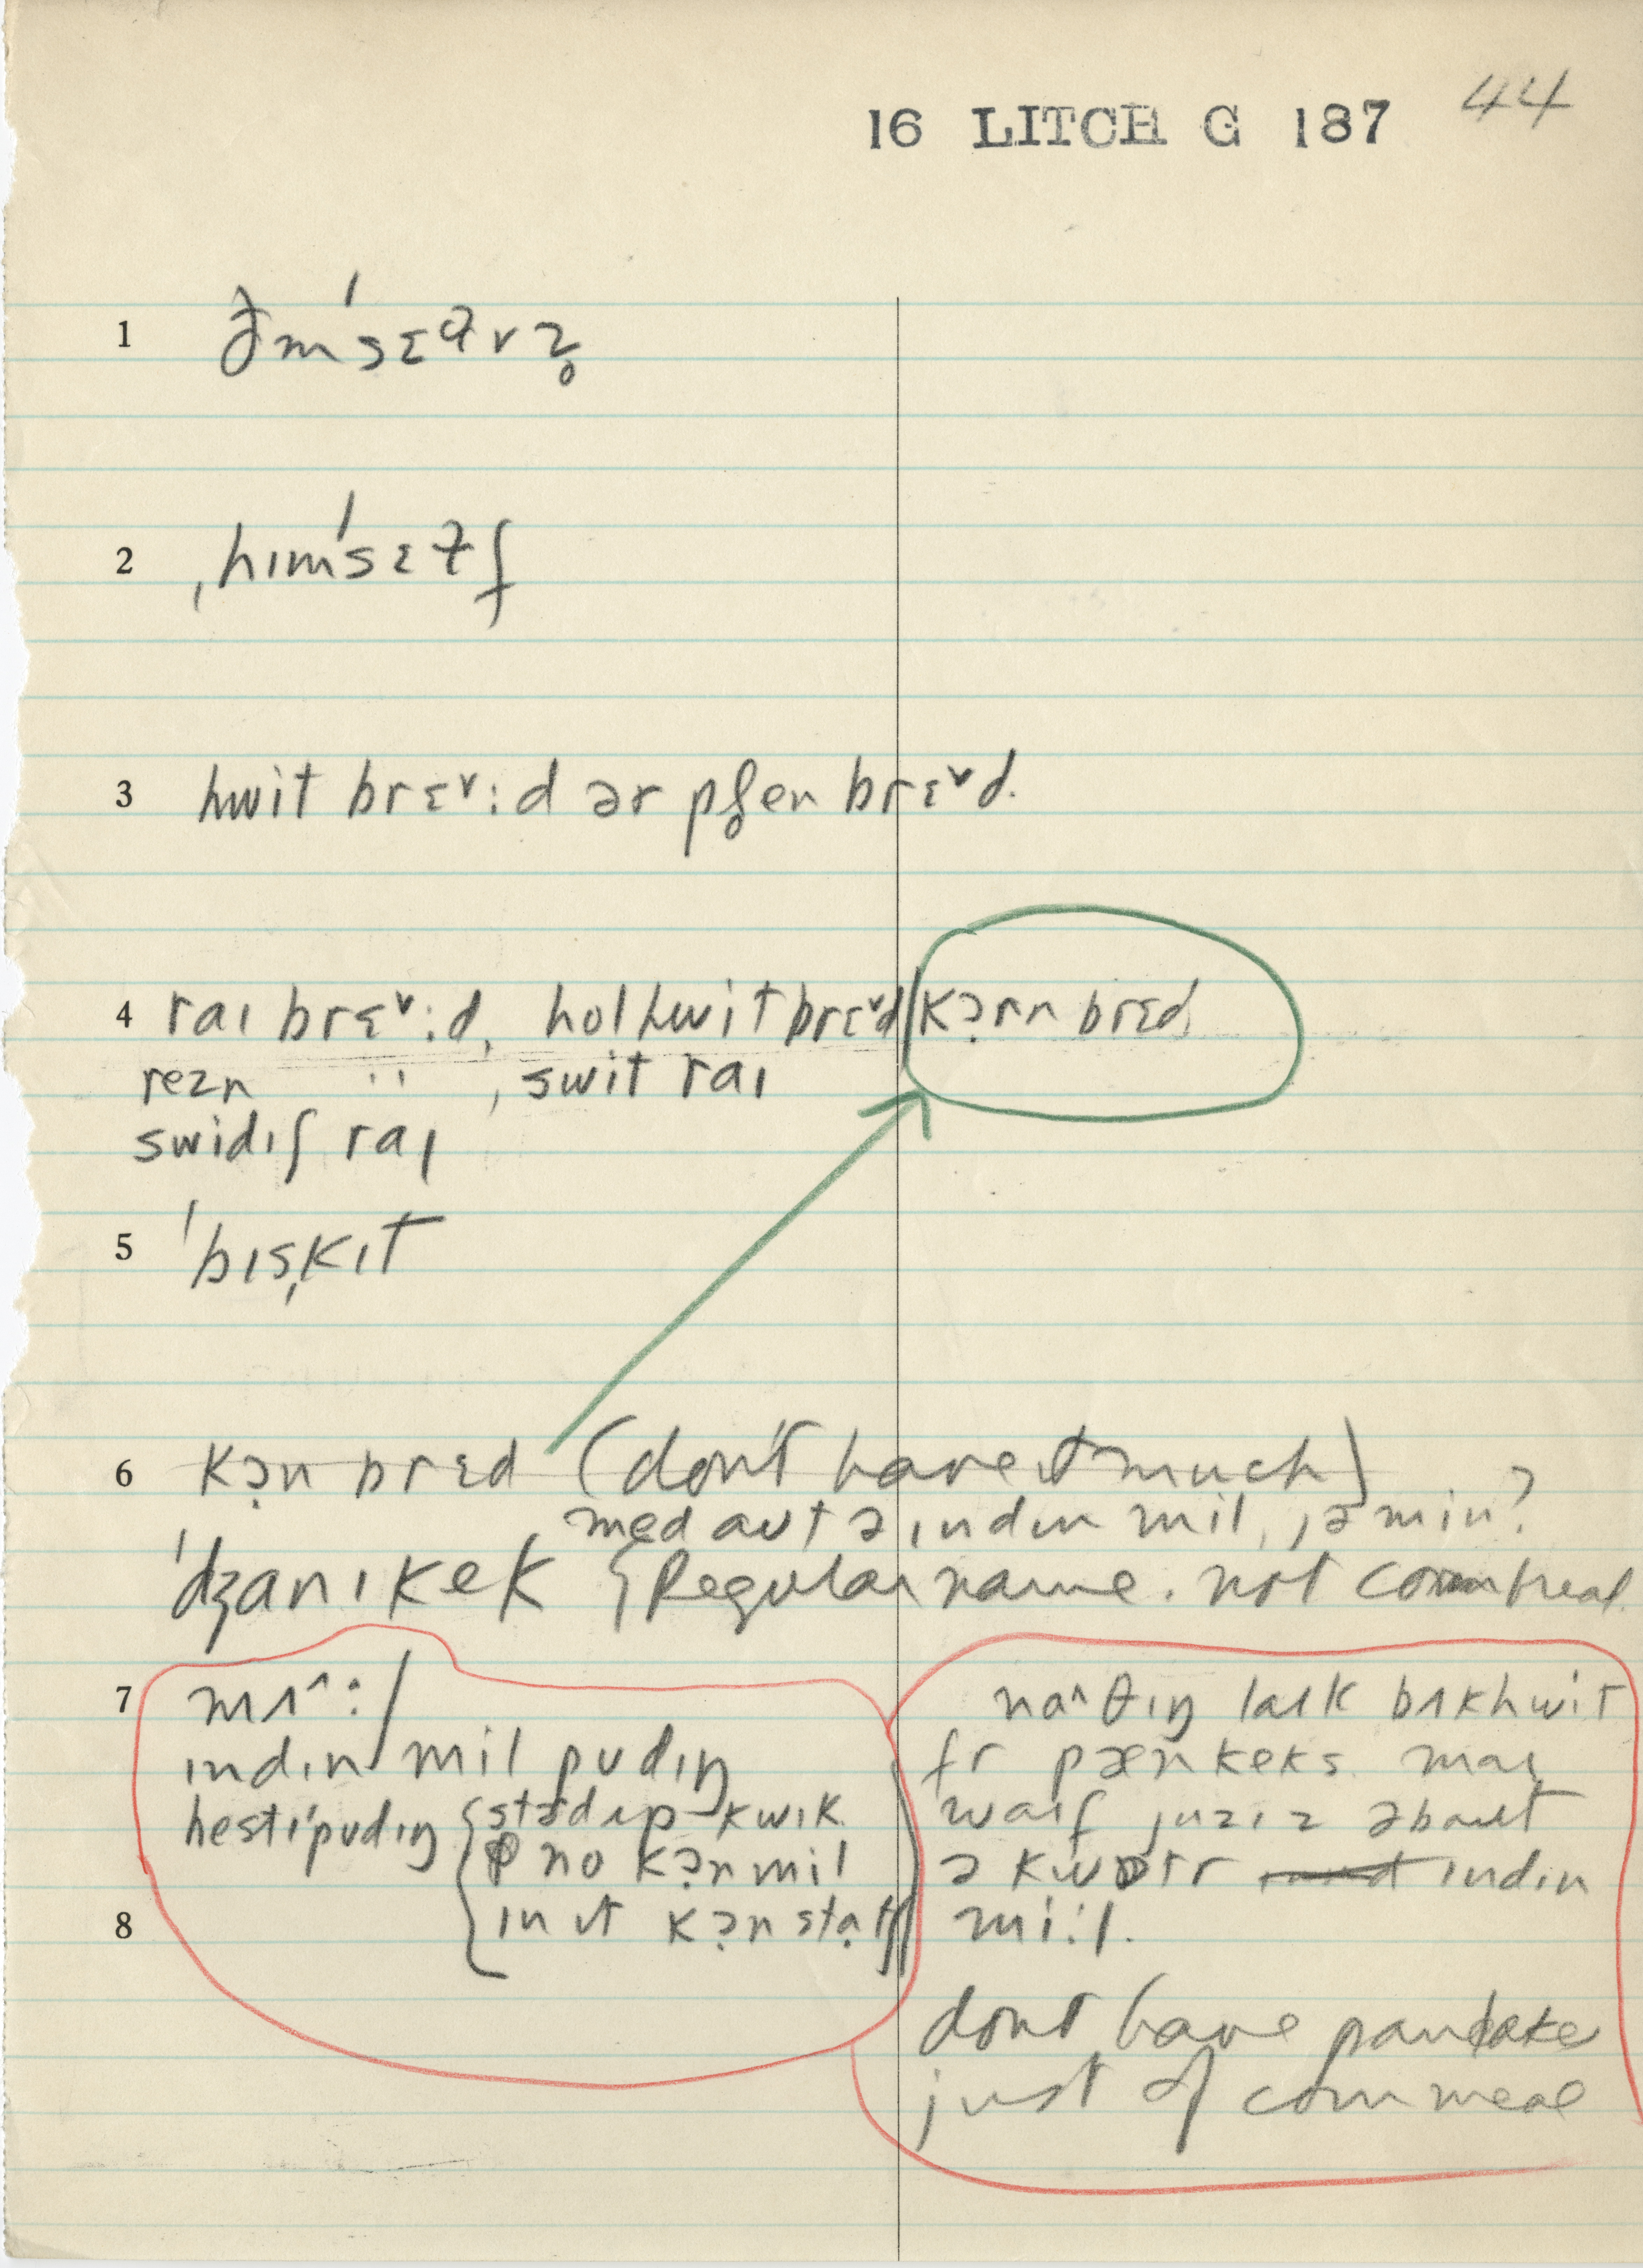 16 LITCH G 187 44
1 ðm'sɛ vz̥
2 ˌhɪm'sɛɫf
3 hwit brɛ˅:d ər plen brɛ˅d.
4 raɪ brɛ˅:d, hol hwit brɛ˅d kɔ̣rn brɛd
rezn " , swit raɪ
swidɪʃ raɪ
5 'bɪs̩kɪt
6 kɔ̣n brɛd (don't have it much)
med aʊt ə ɪndɪn mil, jə min?
'dʒanɪkek { Regular name. not cornbread.
7 mʌ^:/
ɪndɪn mil pʊdɪŋ
hestɪ'pʊdɪŋ { kwɪk
no kɔ̣nmil
ɪn ɪt kɔ̣nstaṭʃ
8
na^θɪŋ laɪk bʌkhwit
fr pænkeks maɪ
waɪf juzɪz əbaut
ə kwɒtr ɪndɪn
mi:l.
dont have pancake
just of corn meal